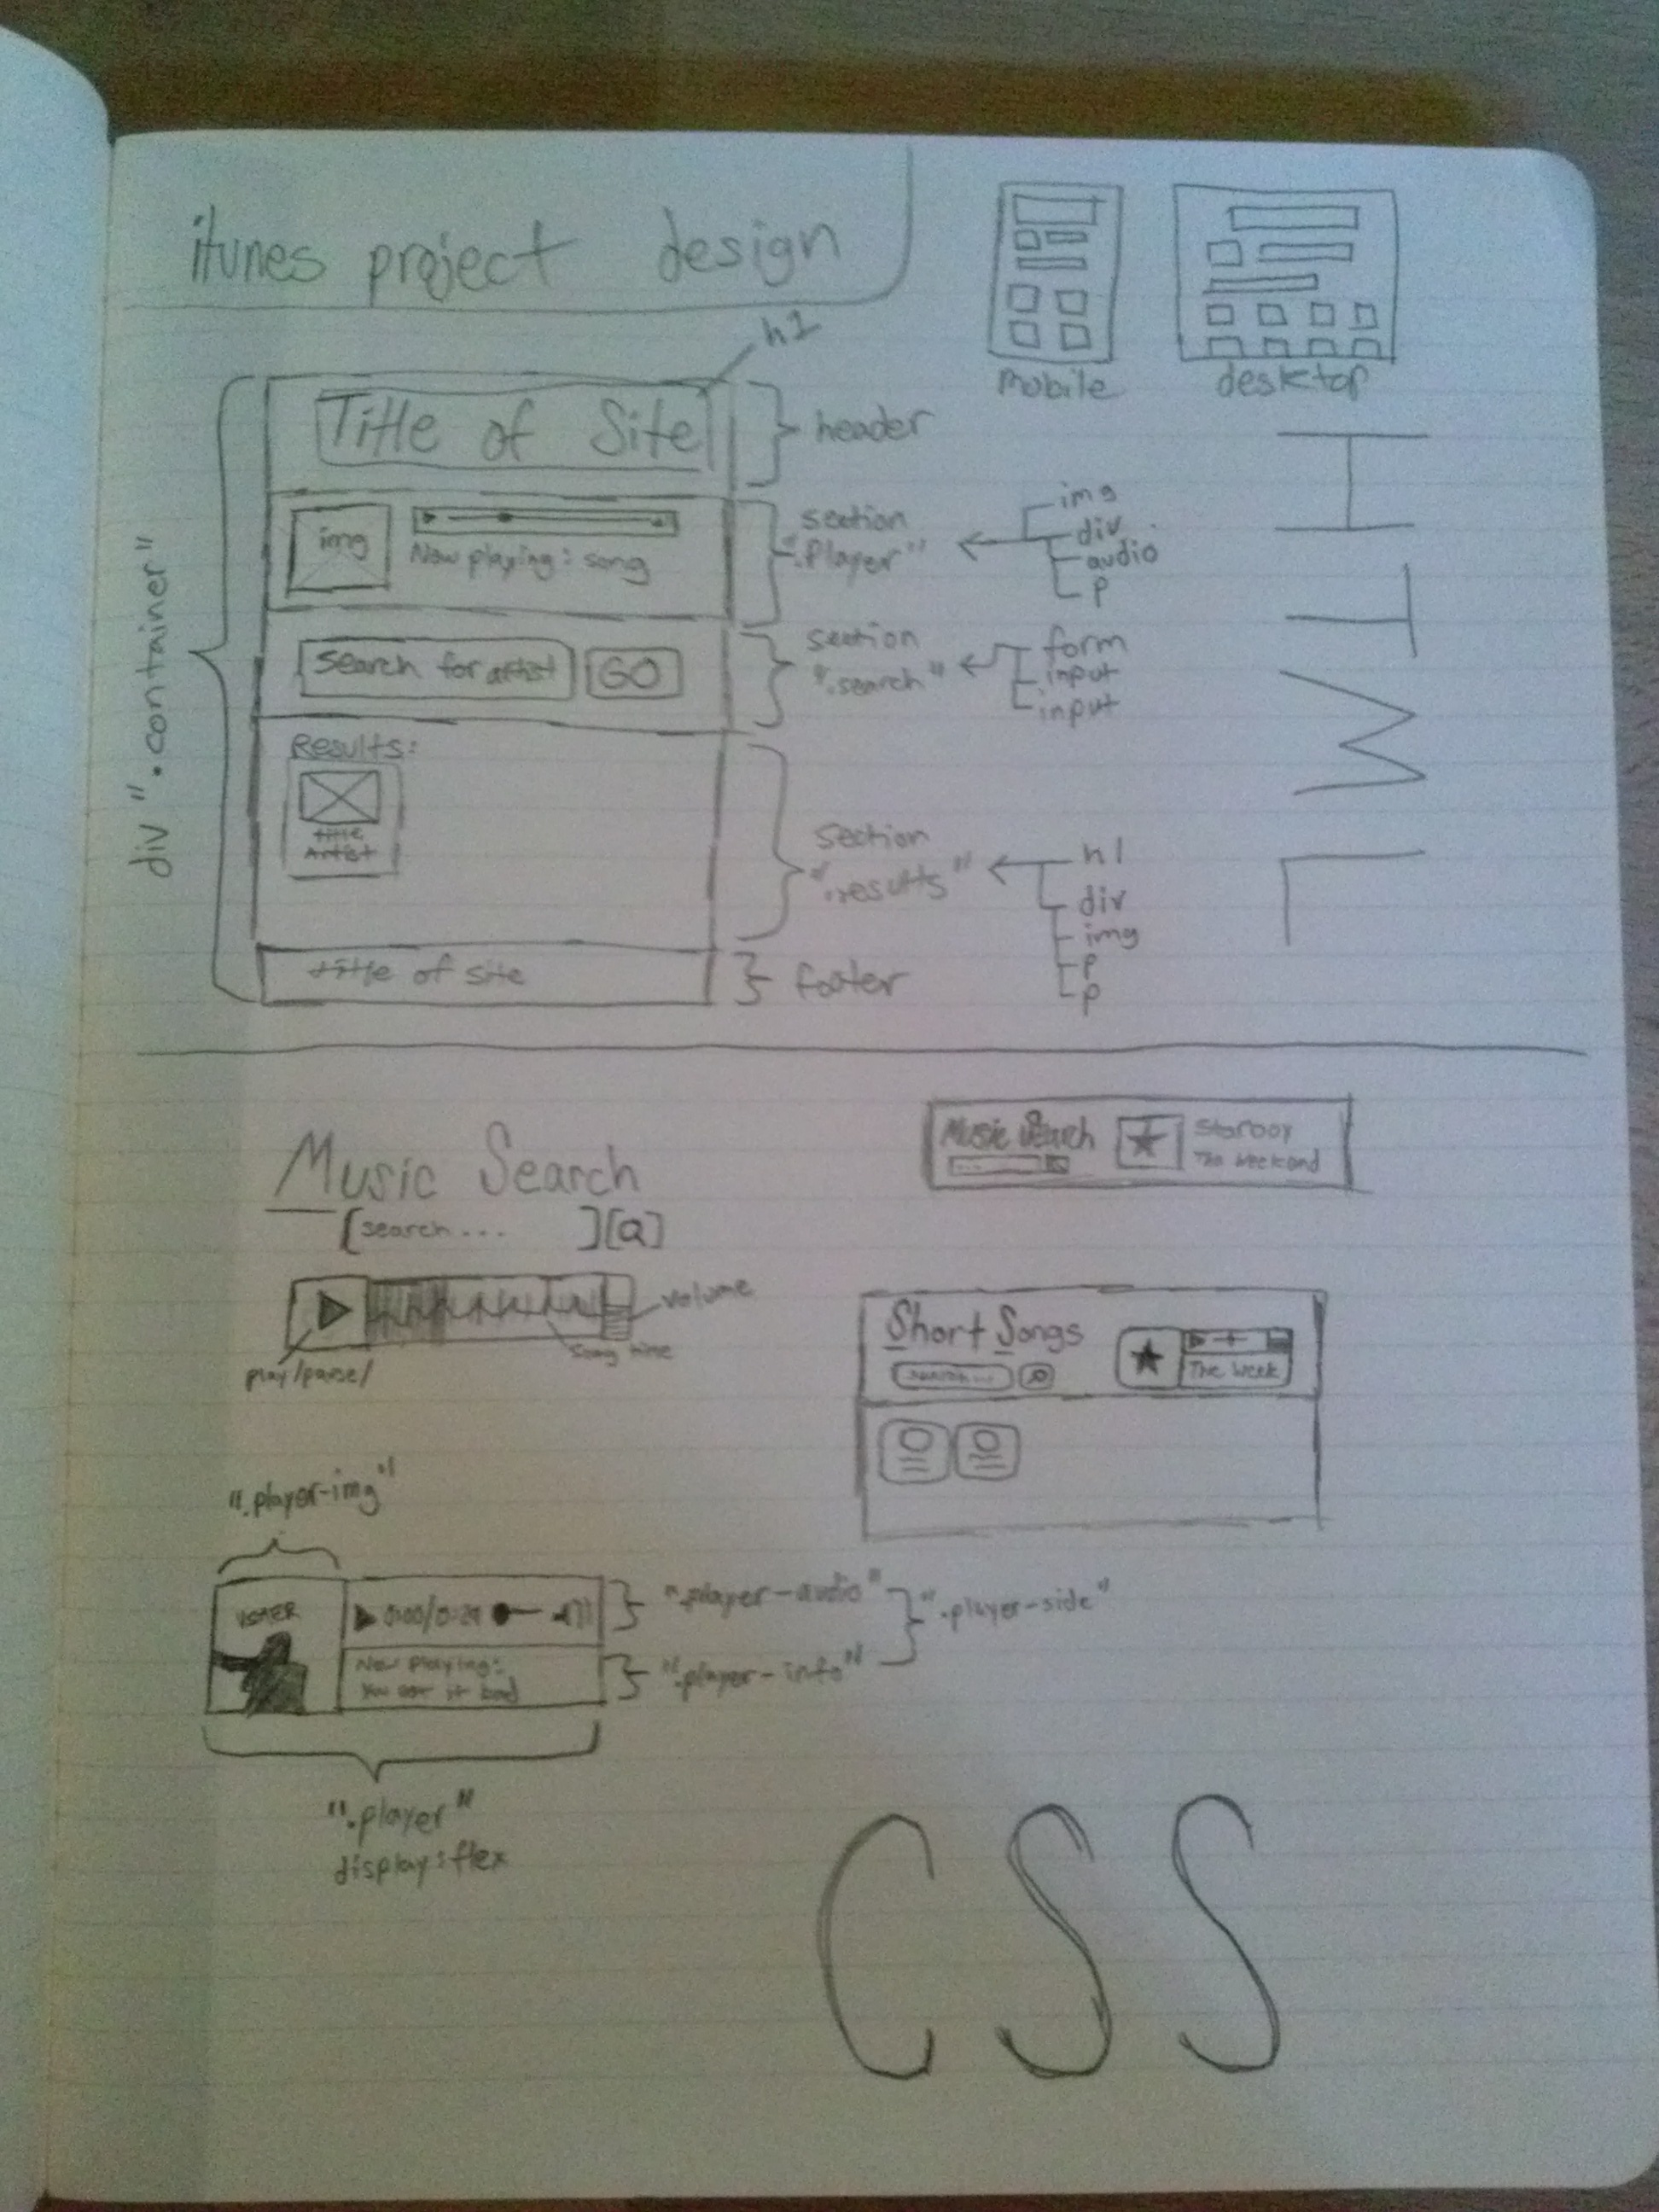 itunes project design
mobile
desktop
h1
Title of Site
header
img
Now playing: song
section
".Player"
img
div
audio
p
search for artist
GO
section
".search"
form
input
input
Results:
title
Artist
section
".results"
h1
div
img
p
p
title of site
footer
div ".container"
HTML
Music Search
[search... ][Q]
volume
song time
play/pause/
Music Search
Starboy
The Weekend
Short Songs
search...
The Week
".player-img"
USHER
0:00/0:29
Now playing:
You got it bad
".player-audio"
".player-info"
".player-side"
".player"
display:flex
CSS